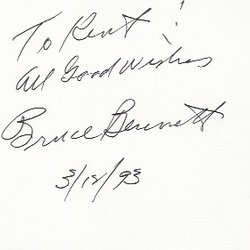 To Kent!
All Good Wishes
Bruce Bennett
3/12/93